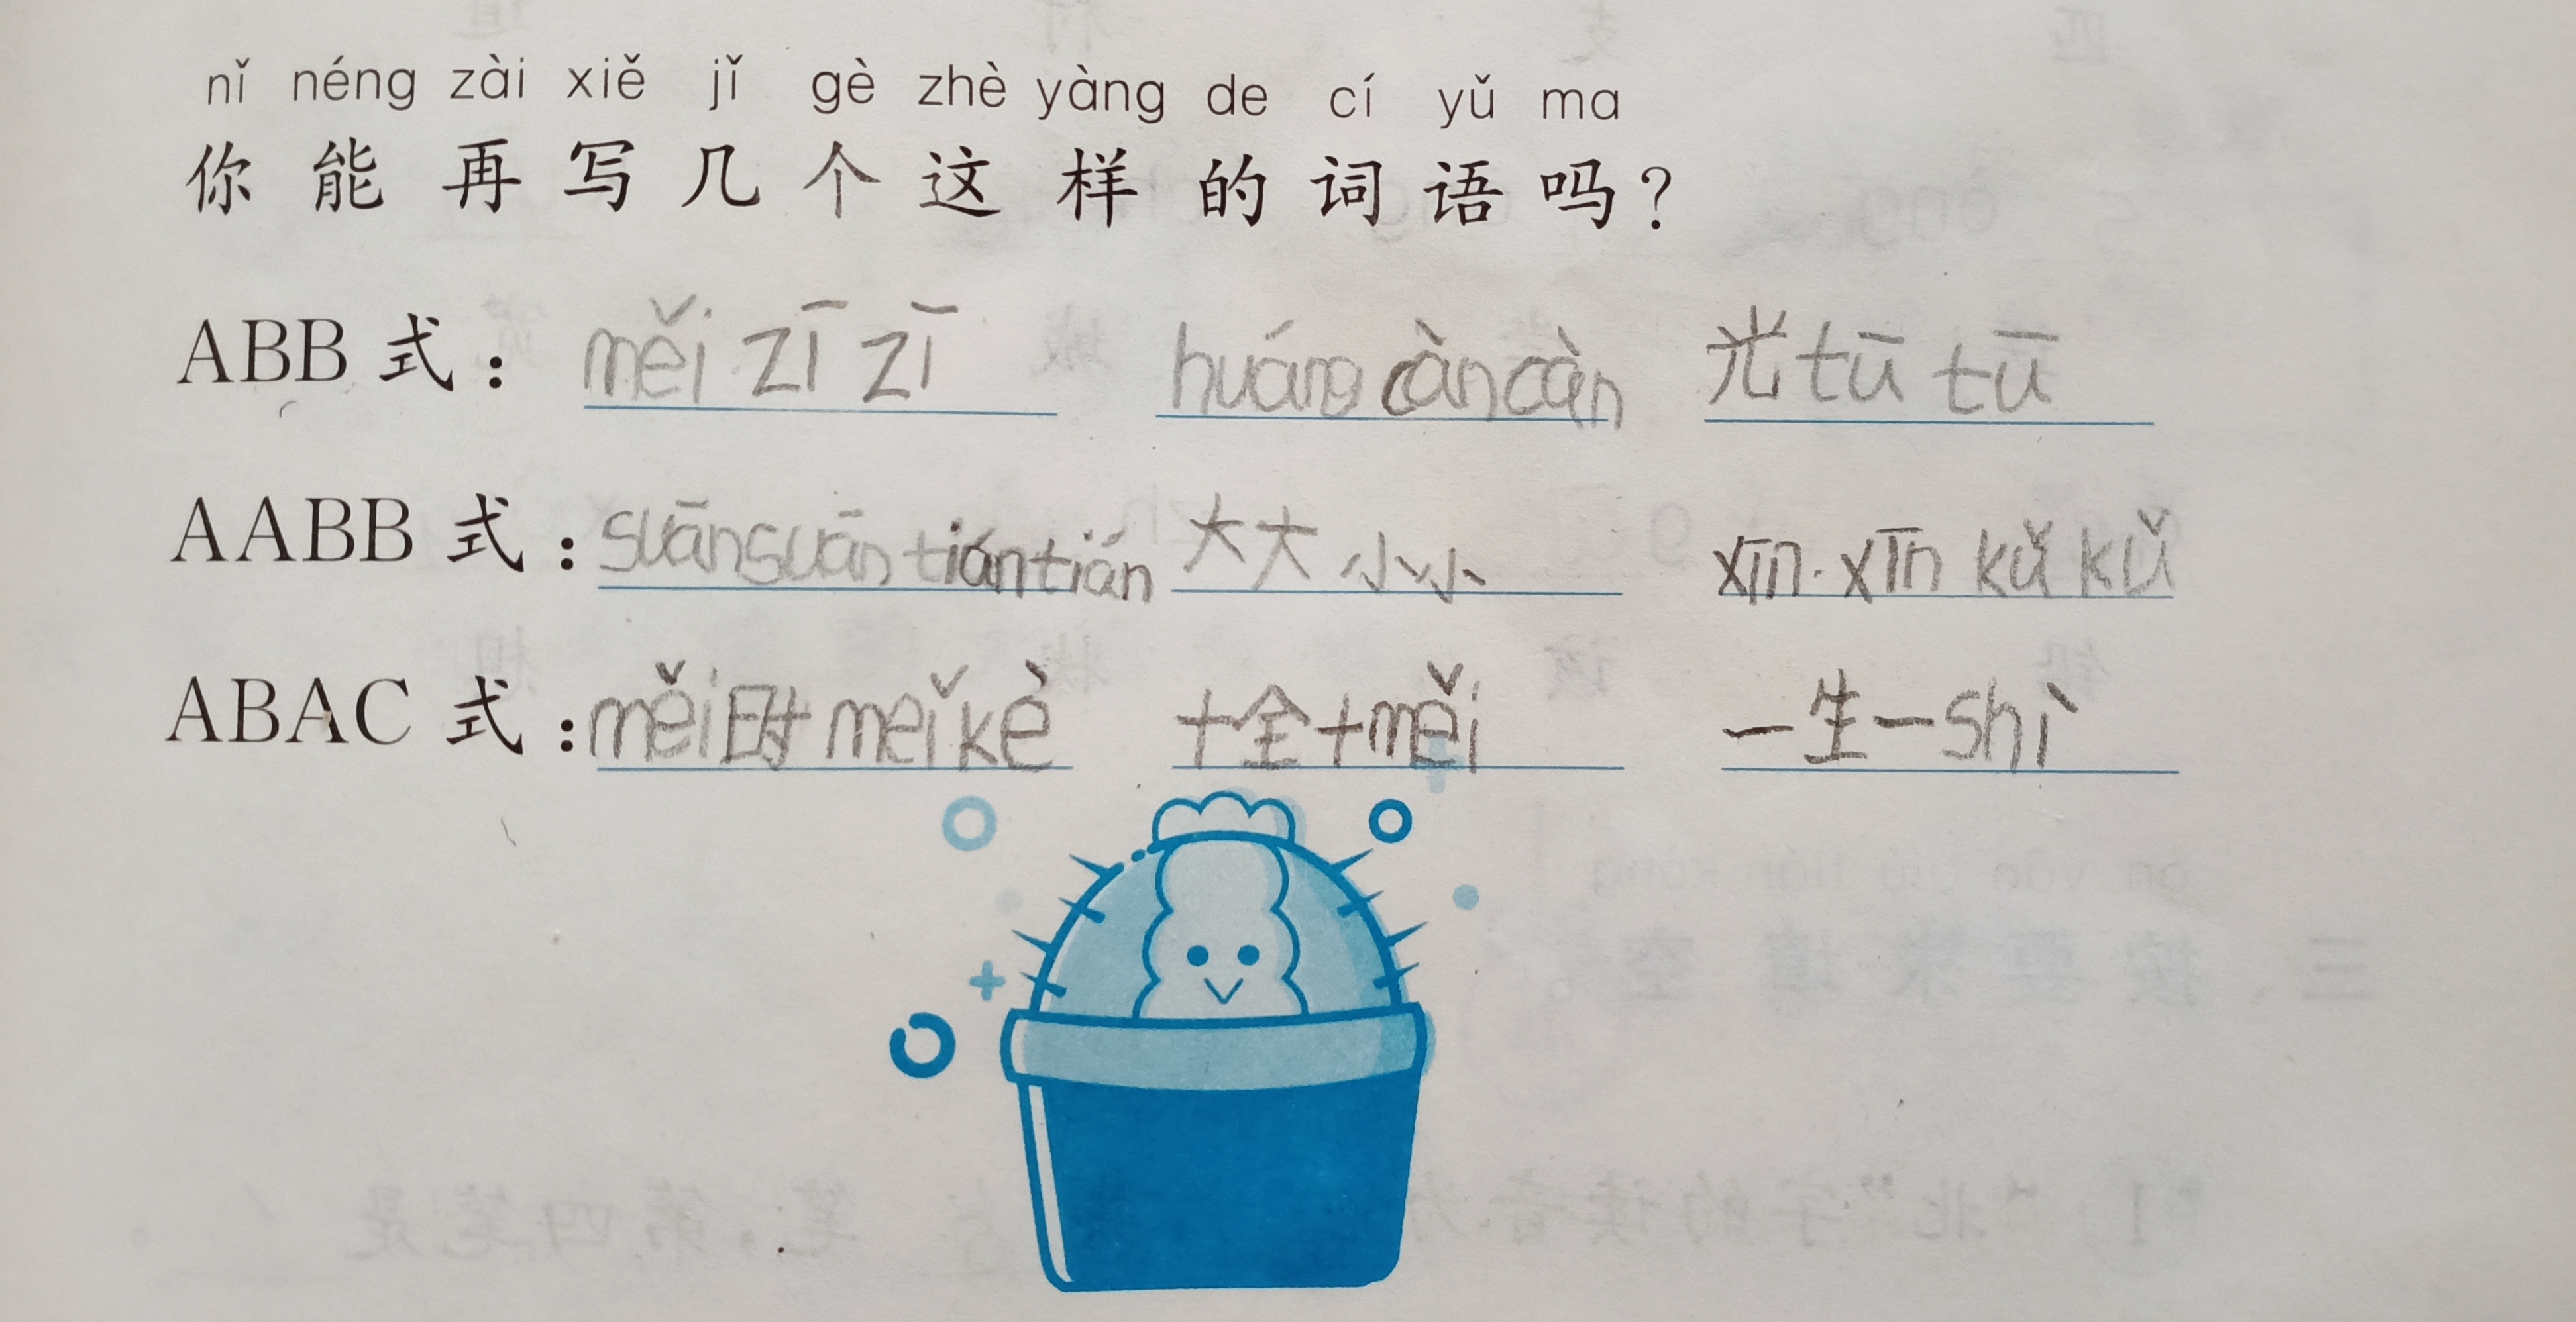 nǐ néng zài xiě jǐ gè zhè yàng de cí yǔ ma
你能再写几个这样的词语吗？
ABB 式：měi zī zī huáng càn càn 光 tū tū
AABB 式：suān suān tián tián 大大小小 xīn xīn kǔ kǔ
ABAC 式：měi时 měi kè 十全十měi 一生一shì